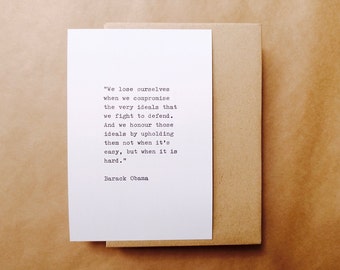 "We lose ourselves
when we compromise
the very ideals that
we fight to defend.
And we honour those
ideals by upholding
them not when it's
easy, but when it is
hard."
Barack Obama